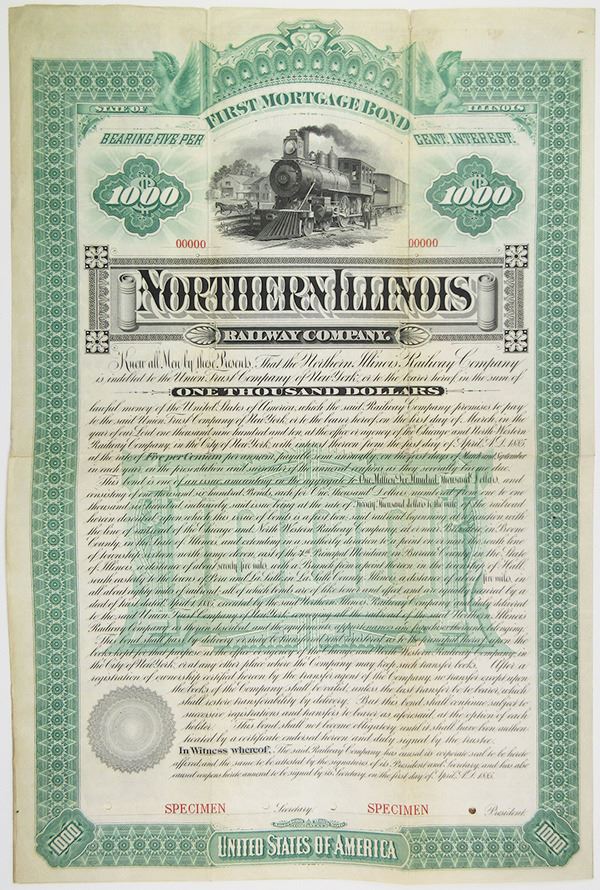 STATE OF ILLINOIS
FIRST MORTGAGE BOND
BEARING FIVE PER CENT. INTEREST.
$1000 $1000
00000 00000
NORTHERN ILLINOIS
RAILWAY COMPANY.
Know all Men by these Presents, That the Northern Illinois Railway Company
is indebted to the Union Trust Company of New York, or to the bearer hereof in the sum of
ONE THOUSAND DOLLARS
lawful money of the United States of America, which the said Railway Company promises to pay
to the said Union Trust Company of New York, or to the bearer hereof, on the first day of March, in the
year of our Lord one thousand nine hundred and ten, at the office or agency of the Chicago and North Western
Railway Company, in the City of New York, with interest thereon from the first day of April, A.D. 1885,
at the rate of Five per Centum per annum, payable semi-annually, on the first days of March and September
in each year, on the presentation and surrender of the annexed coupons as they severally become due.
This bond is one of an issue amounting in the aggregate to One Million Five Hundred Thousand Dollars, and
consisting of one thousand five hundred Bonds, each for One Thousand Dollars, numbered from one to one
thousand five hundred, inclusively, said issue being at the rate of Twenty Thousand dollars to the mile of the railroad
herein described, upon which this issue of bonds is a first lien: said railroad beginning at a junction with
the line of railroad of the Chicago and North Western Railway Company, at in Boone
County, in the State of Illinois, and extending thence to a point in the south line
of township, north, range eleven, east of the 4th Principal Meridian, in Bureau County, in the State
of Illinois, a distance of about seventy five miles, with a Branch from a point in the township of Hall,
south easterly to the towns of Peru and La Salle, in La Salle County, Illinois, a distance of about five miles, in
all about eighty miles of railroad; all of which bonds are of like tenor and effect and are equally secured by a
deed of trust dated April 1, 1885, executed by the said Northern Illinois Railway Company and duly delivered
to the said Union Trust Company of New York, as trustee, of the railroad of the said Northern Illinois
Railway Company
This bond shall pass by delivery, or it may be transferred when registered as to the ownership thereof upon the
books for that purpose in the office or agency of the Chicago and North Western Railway Company in
the City of New York, or at any other place where the Company may keep such transfer books. After a
registration of ownership certified hereon by the transfer agent of the Company, no transfer except upon
the books of the Company shall be valid, unless the last transfer be to bearer, which
shall restore transferability by delivery. But this bond shall continue subject to
successive registrations and transfers to bearer as aforesaid, at the option of each
holder. This bond shall not become obligatory until it shall have been authen-
ticated by a certificate endorsed hereon and duly signed by the trustee.
In Witness whereof, The said Railway Company has caused its corporate seal to be hereto
affixed and the same to be attested by the signatures of its President and Secretary, and has also
caused coupons hereto annexed to be signed by its Secretary, on the first day of April, A.D. 1885.
SPECIMEN Secretary. SPECIMEN President.
1000 UNITED STATES OF AMERICA 1000